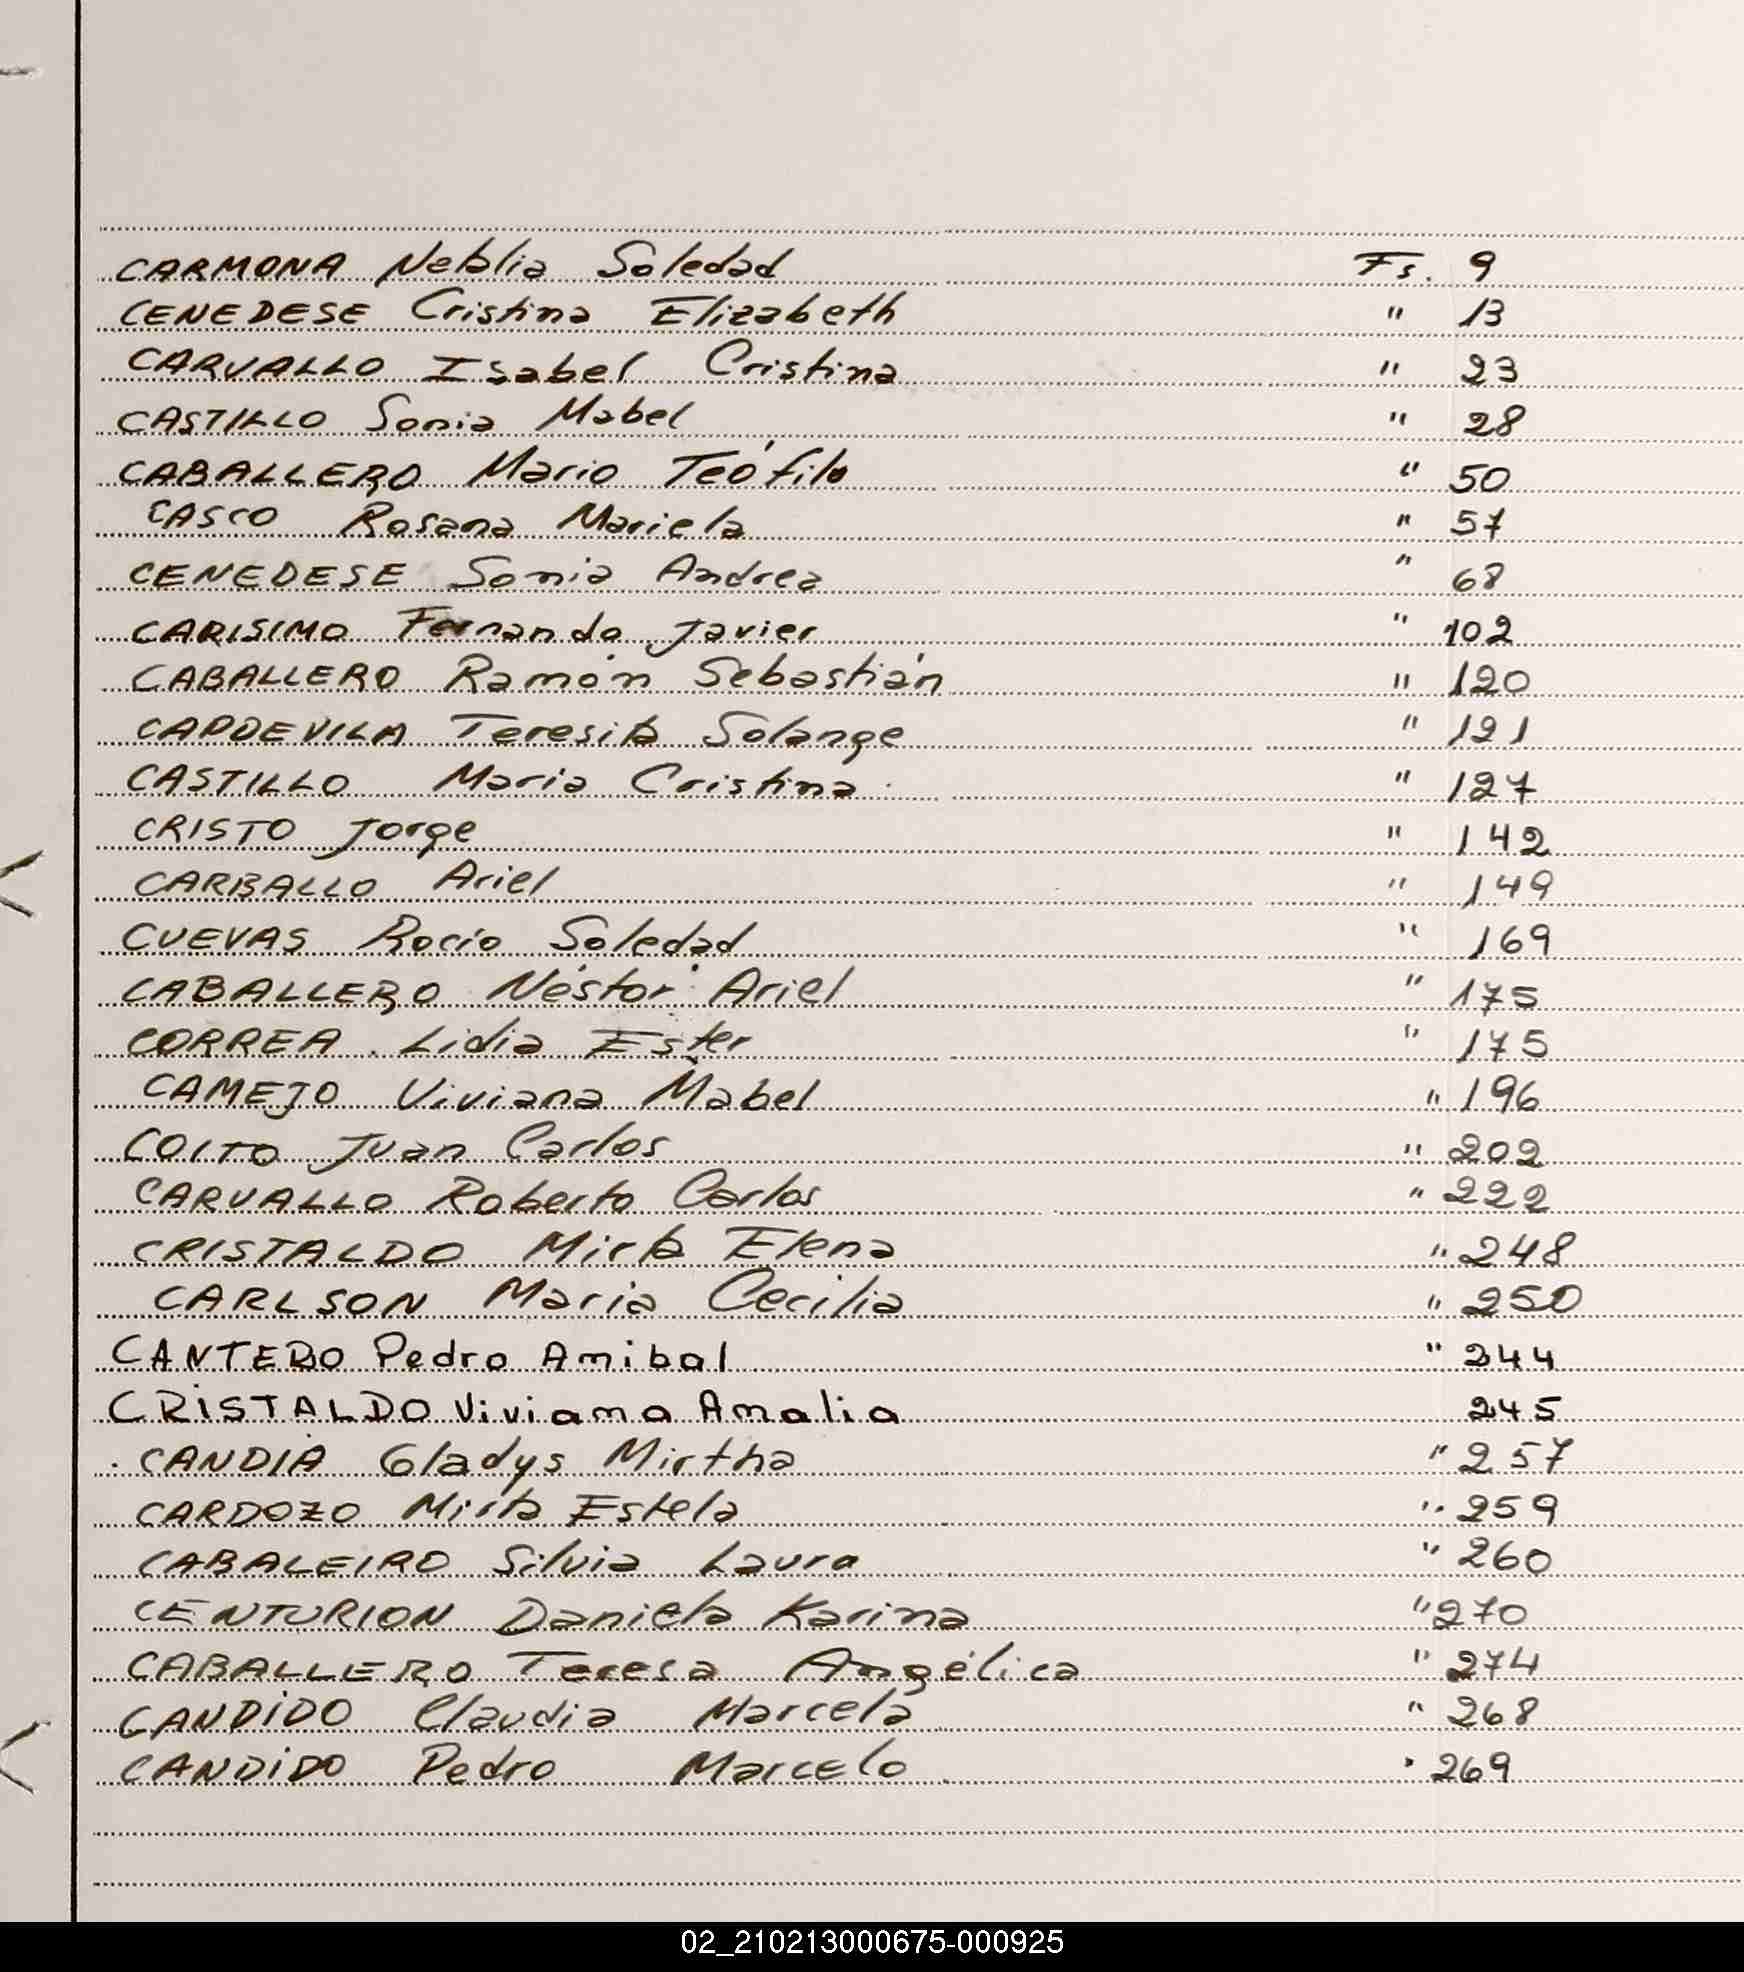 CARMONA Natalia Soledad Fs. 9
CENEDESE Cristina Elizabeth " 13
CARVALLO Isabel Cristina " 23
CASTILLO Sonia Mabel " 28
CABALLERO Mario Teófilo " 50
CASCO Rosana Mariela " 57
CENEDESE Sonia Andrea " 68
CARISIMO Fernando Javier " 102
CABALLERO Ramón Sebastián " 120
CAPDEVILA Teresita Solange " 121
CASTILLO Maria Cristina " 127
CRISTO Jorge " 142
CARBALLO Ariel " 149
CUEVAS Rocío Soledad " 169
CABALLERO Néstor Ariel " 175
CORREA Lidia Ester " 175
CAMEJO Viviana Mabel " 196
COITO Juan Carlos " 202
CARVALLO Roberto Carlos " 222
CRISTALDO Mirta Elena " 248
CARLSON Maria Cecilia " 250
CANTERO Pedro Anibal " 244
CRISTALDO Viviana Amalia 245
CANDIA Gladys Mirtha " 257
CARDOZO Mirta Estela " 259
CABALEIRO Silvia Laura " 260
CENTURION Daniela Karina " 270
CABALLERO Teresa Angélica " 274
CANDIDO Claudia Marcela " 268
CANDIDO Pedro Marcelo " 269
02_210213000675-000925